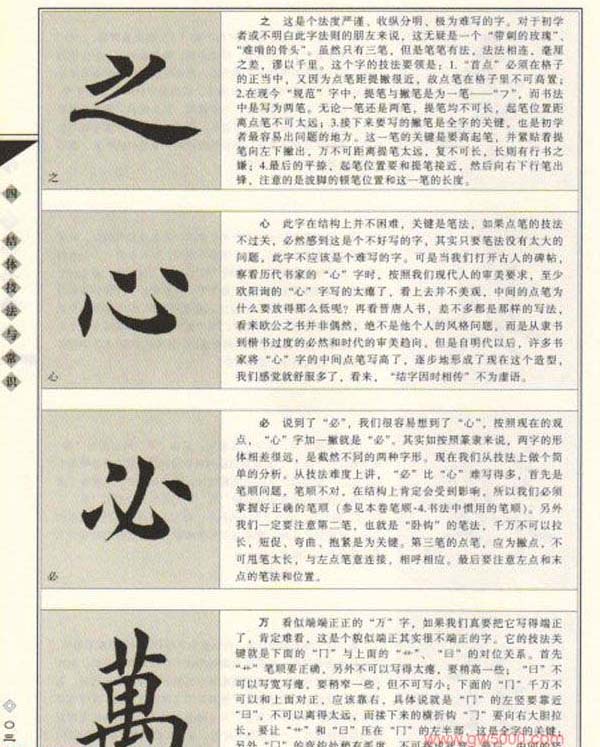 之 这是个法度严谨、收纵分明、极为难写的字。对于初学
者或不明白此字法则的朋友来说，这无疑是一个“带刺的玫瑰”、
“难啃的骨头”。虽然只有三笔，但是笔笔有法，法法相连，毫厘
之差，谬以千里。这个字的技法要领是：1.“首点”必须在格子
的正当中，又因为点笔距提撇很近，故点笔在格子里不可高置；
2.在现今“规范”字中，提笔与撇笔是为一笔——“フ”，而书法
中是写为两笔。无论一笔还是两笔，提笔均不可长，起笔位置距
离点笔不可太远；3.接下来要写的撇笔是全字的关键，也是初学
者最容易出问题的地方。这一笔的关键是要高起笔，并紧贴着提
笔向左下撇出，万不可距离提笔太远，复不可长，长则有行书之
嫌；4.最后的平捺，起笔位置要和提笔接近，然后向右下行笔出
锋，注意的是波脚的顿笔位置和这一笔的长度。
之
之
四 结体技法与常识
心 此字在结构上并不困难，关键是笔法，如果点笔的技法
不过关，必然感到这是个不好写的字，其实只要笔法没有太大的
问题，此字不应该是个难写的字。可是当我们打开古人的碑帖，
察看历代书家的“心”字时，按照我们现代人的审美要求，至少
欧阳询的“心”字写的太瘪了，看上去并不美观，中间的点笔为
什么要放得那么低呢？再看晋唐人书，差不多都是那样的写法，
看来欧公之书并非偶然，绝不是他个人的风格问题，而是从隶书
到楷书过度的必然和时代的审美趋向。但是自明代以后，许多书
家将“心”字的中间点笔写高了，逐步地形成了现在这个造型，
我们感觉就舒服多了，看来，“结字因时相传”不为虚语。
心
心
必 说到了“必”，我们很容易想到了“心”，按照现在的观
点，“心”字加一撇就是“必”。其实如按照篆隶来说，两字的形
体相差很远，是截然不同的两种字形。现在我们从技法上做个简
单的分析。从技法难度上讲，“必”比“心”难写得多，首先是
笔顺问题，笔顺不对，在结构上肯定会受到影响，所以我们必须
掌握好正确的笔顺（参见本卷笔顺-4.书法中惯用的笔顺）。另外
我们一定要注意第二笔，也就是“卧钩”的笔法，千万不可以拉
长，短促、弯曲、抱紧是为关键。第三笔的点笔，应为撇点，不
可甩笔太长，与左点笔意连接，相呼相应。最后要注意左点和末
点的笔法和位置。
必
必
万 看似端端正正的“万”字，如果我们真要把它写得端正
了，肯定难看，这是个貌似端正其实很不端正的字。它的技法关
键就是下面的“冂”与上面的“艹”、“曰”的对位关系。首先
“艹”笔顺要正确，另外不可以写得太瘪，要稍高一些；“曰”不
可以写宽写瘪，要稍窄一些，但不可写小；下面的“冂”千万不
可以和上面对正，应该靠右，具体说就是“冂”的左竖要靠近
“曰”，不可以离得太远，而接下来的横折钩“㇆”要向右大胆拉
长，要让“艹”和“曰”压在“冂”的左半部，这是全字的关键；
萬
〇三
www.gw5000.com